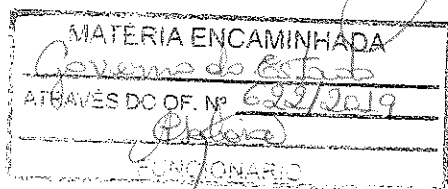 MATÉRIA ENCAMINHADA
Governo do Estado
ATRAVÉS DO OF. Nº 622/2019
FUNCIONÁRIO